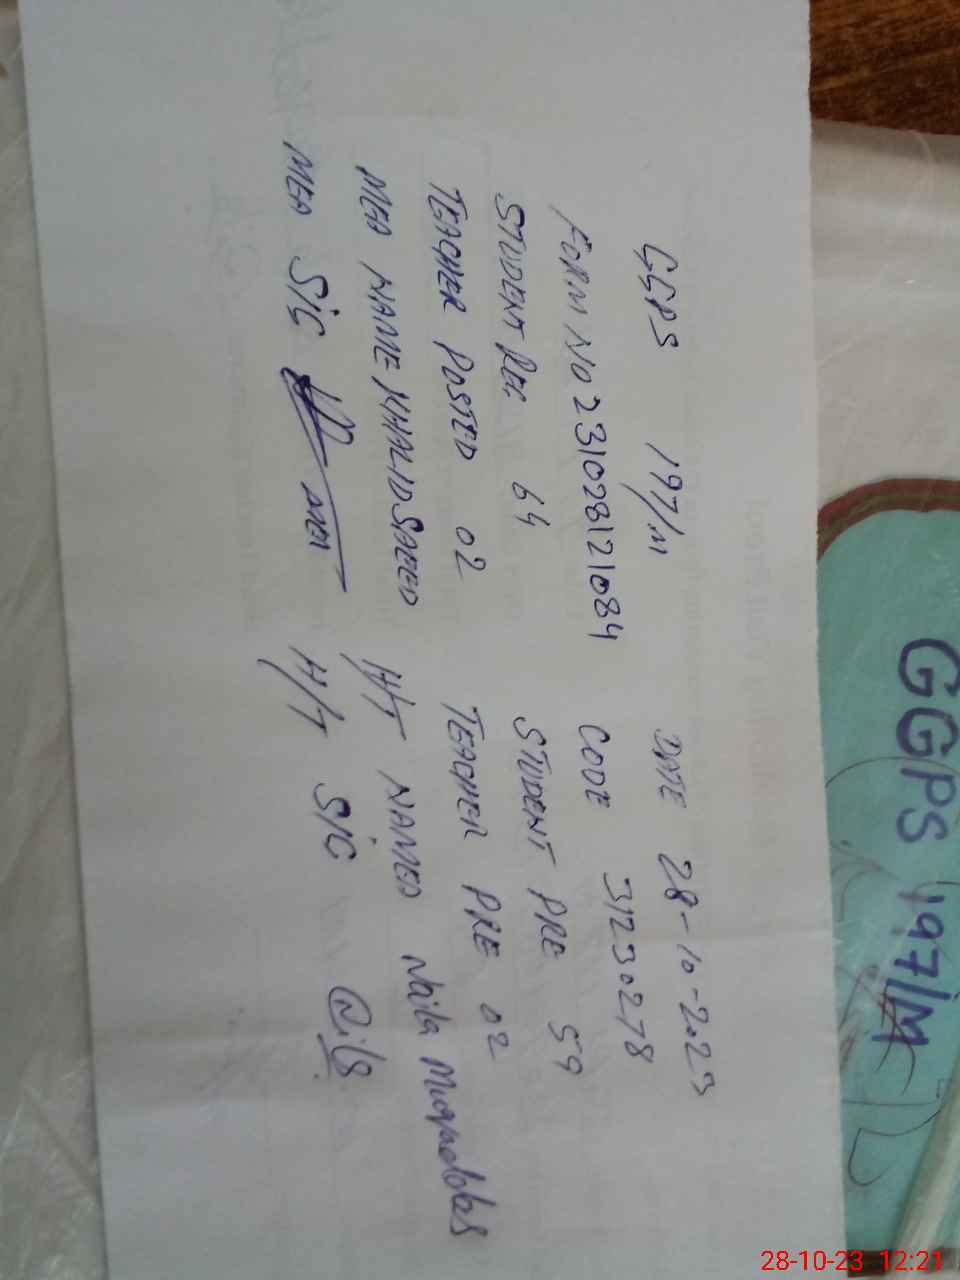 GGPS 197/M DATE 28-10-2023
FORM NO 231028121084 CODE 31230278
STUDENT REG 64 STUDENT PRE 59
TEACHER POSTED 02 TEACHER PRE 02
MEA NAME KHALID SAEED H/T NAMED Naila
MEA SIG MEA H/T SIG
GGPS 197/M
28-10-23 12:21